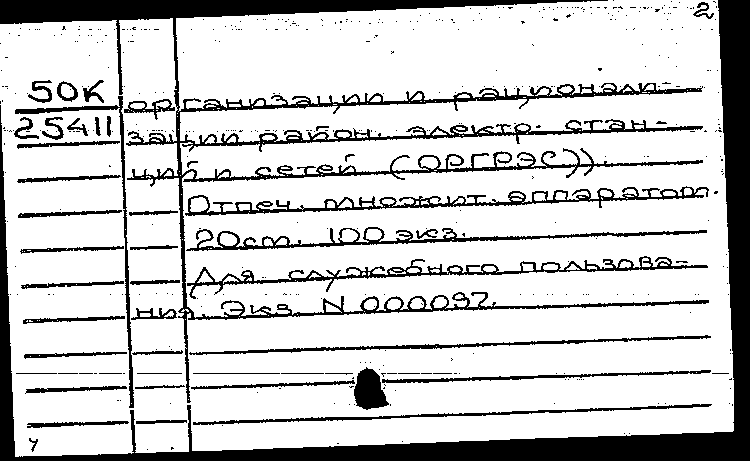 2
50К организации и рационали-
25411 зации район. электр. стан-
ций и сетей (ОРГРЭС)).
Отпеч. множит. аппаратом.
20 см. 100 экз.
Для служебного пользова-
ния. Экз. N 000097.